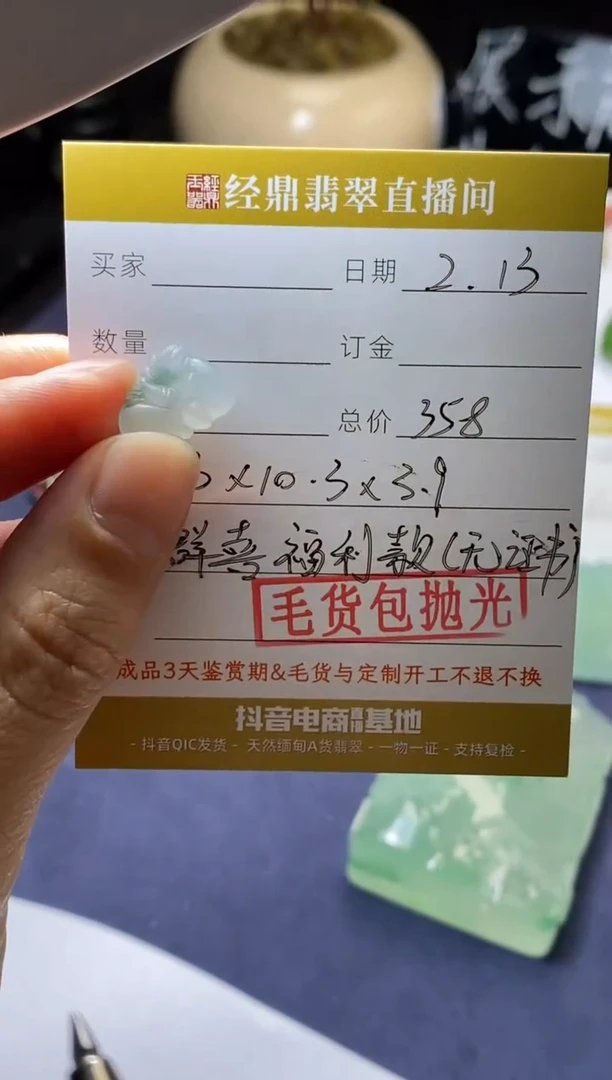 经鼎翡翠直播间
买家 日期 2.13
数量 订金
总价 358
×10.3×3.9
群喜福利款(无证书)
毛货包抛光
成品3天鉴赏期&毛货与定制开工不退不换
抖音电商 基地
- 抖音QIC发货 - 天然缅甸A货翡翠 - 一物一证 - 支持复检 -